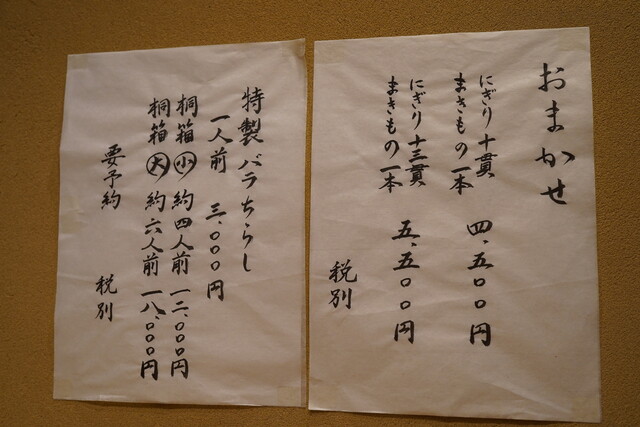 おまかせ
にぎり十貫
まきもの一本
四、五〇〇円
にぎり十三貫
まきもの一本
五、五〇〇円
税別
特製バラちらし
一人前 三、〇〇〇円
桐箱小 約四人前 一二、〇〇〇円
桐箱大 約六人前 一八、〇〇〇円
要予約 税別